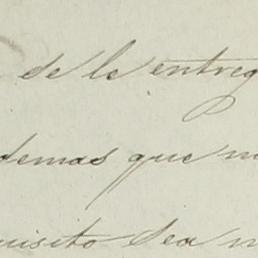 de le entreg
demas que
uisito sea